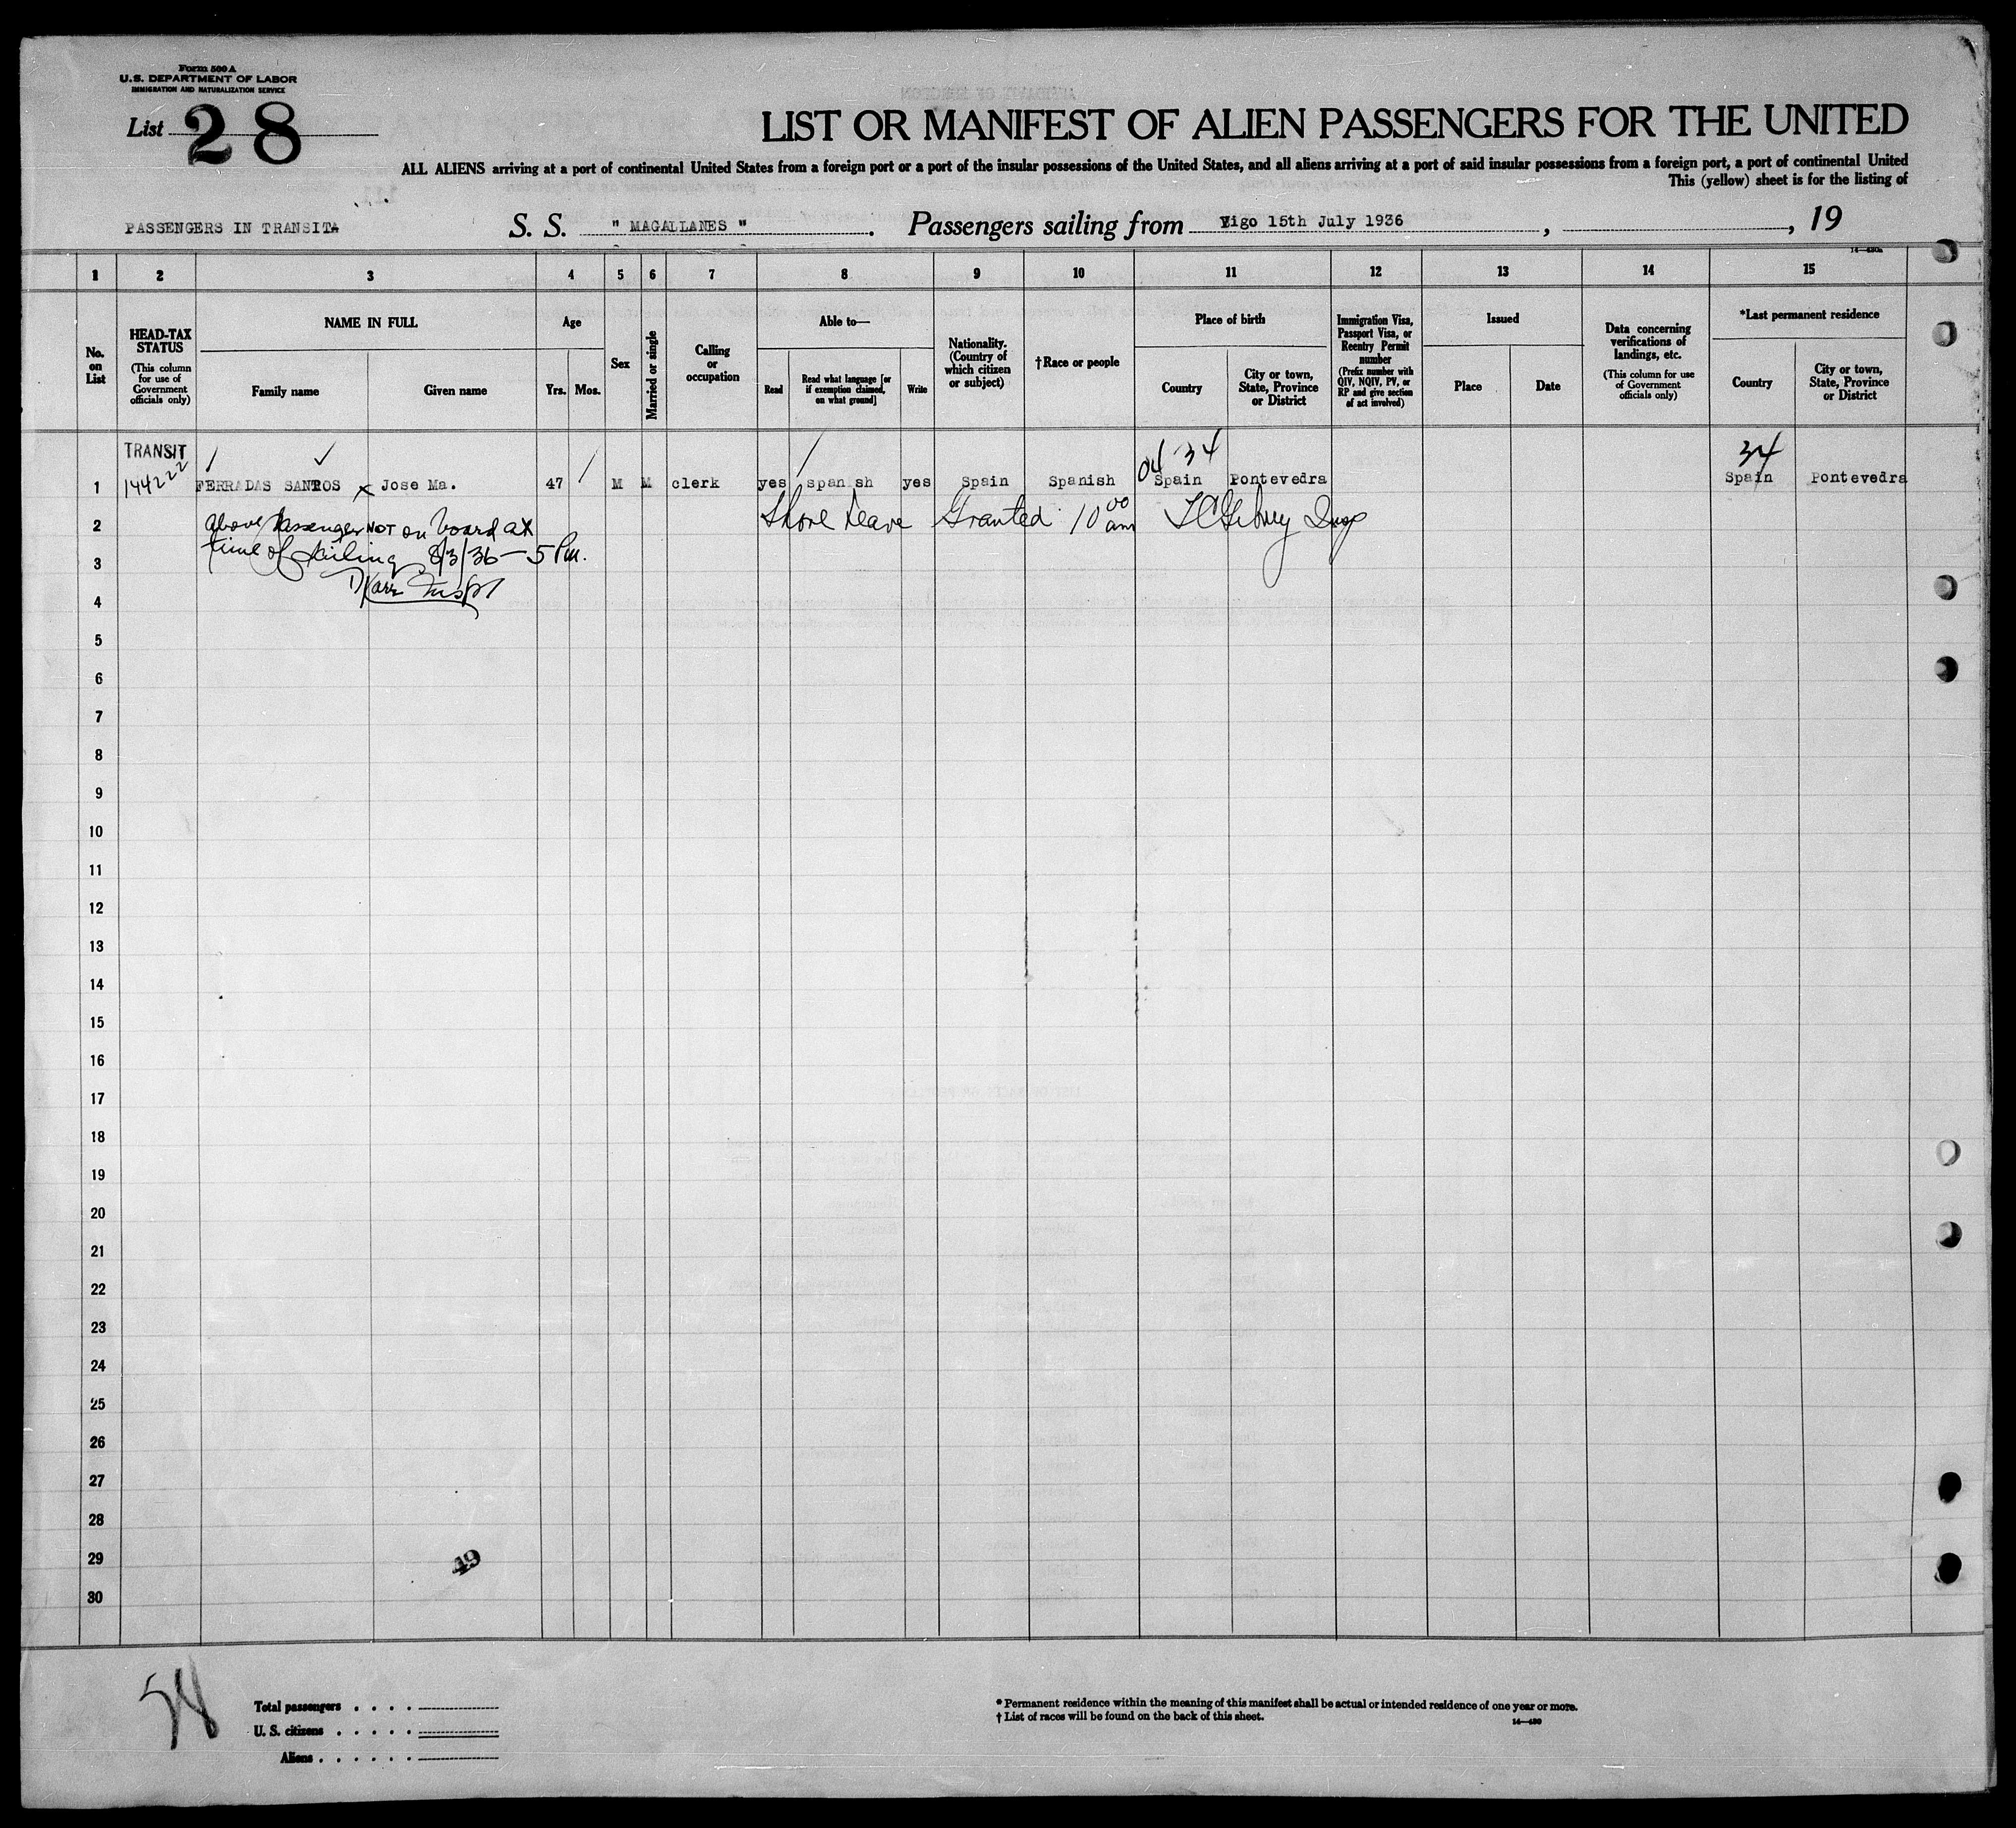 Form 500 A
U.S. DEPARTMENT OF LABOR
IMMIGRATION AND NATURALIZATION SERVICE
List 28
LIST OR MANIFEST OF ALIEN PASSENGERS FOR THE UNITED
ALL ALIENS arriving at a port of continental United States from a foreign port or a port of the insular possessions of the United States, and all aliens arriving at a port of said insular possessions from a foreign port, a port of continental United
This (yellow) sheet is for the listing of
PASSENGERS IN TRANSITA S. S. " MAGALLANES ". Passengers sailing from Vigo 15th July 1936, , 19
14—430a
1 2 3 4 5 6 7 8 9 10 11 12 13 14 15
No. on List
HEAD-TAX STATUS
(This column for use of Government officials only)
NAME IN FULL
Family name
Given name
Age
Yrs. Mos.
Sex
Married or single
Calling or occupation
Able to—
Read
Read what language [or if exemption claimed, on what ground]
Write
Nationality. (Country of which citizen or subject)
†Race or people
Place of birth
Country
City or town, State, Province or District
Immigration Visa, Passport Visa, or Reentry Permit number
(Prefix number with QIV, NQIV, PV, or RP and give section of act involved)
Issued
Place
Date
Data concerning verifications of landings, etc.
(This column for use of Government officials only)
*Last permanent residence
Country
City or town, State, Province or District
TRANSIT
04 34 34
1 144222 FERRADAS SANTOS x Jose Ma. 47 M M clerk yes span sh yes Spain Spanish Spain Pontevedra Spain Pontevedra
2 above passenger NOT on board at Shore Leave Granted 10 00 am Insp
3 time of sailing 8/3/36 — 5 Pm.
4 Inspr
5
6
7
8
9
10
11
12
13
14
15
16
17
18
19
20
21
22
23
24
25
26
27
28
29
49
30
Total passengers . . . .
U. S. citizens . . . . .
Aliens . . . . . .
* Permanent residence within the meaning of this manifest shall be actual or intended residence of one year or more.
† List of races will be found on the back of this sheet.
14—430